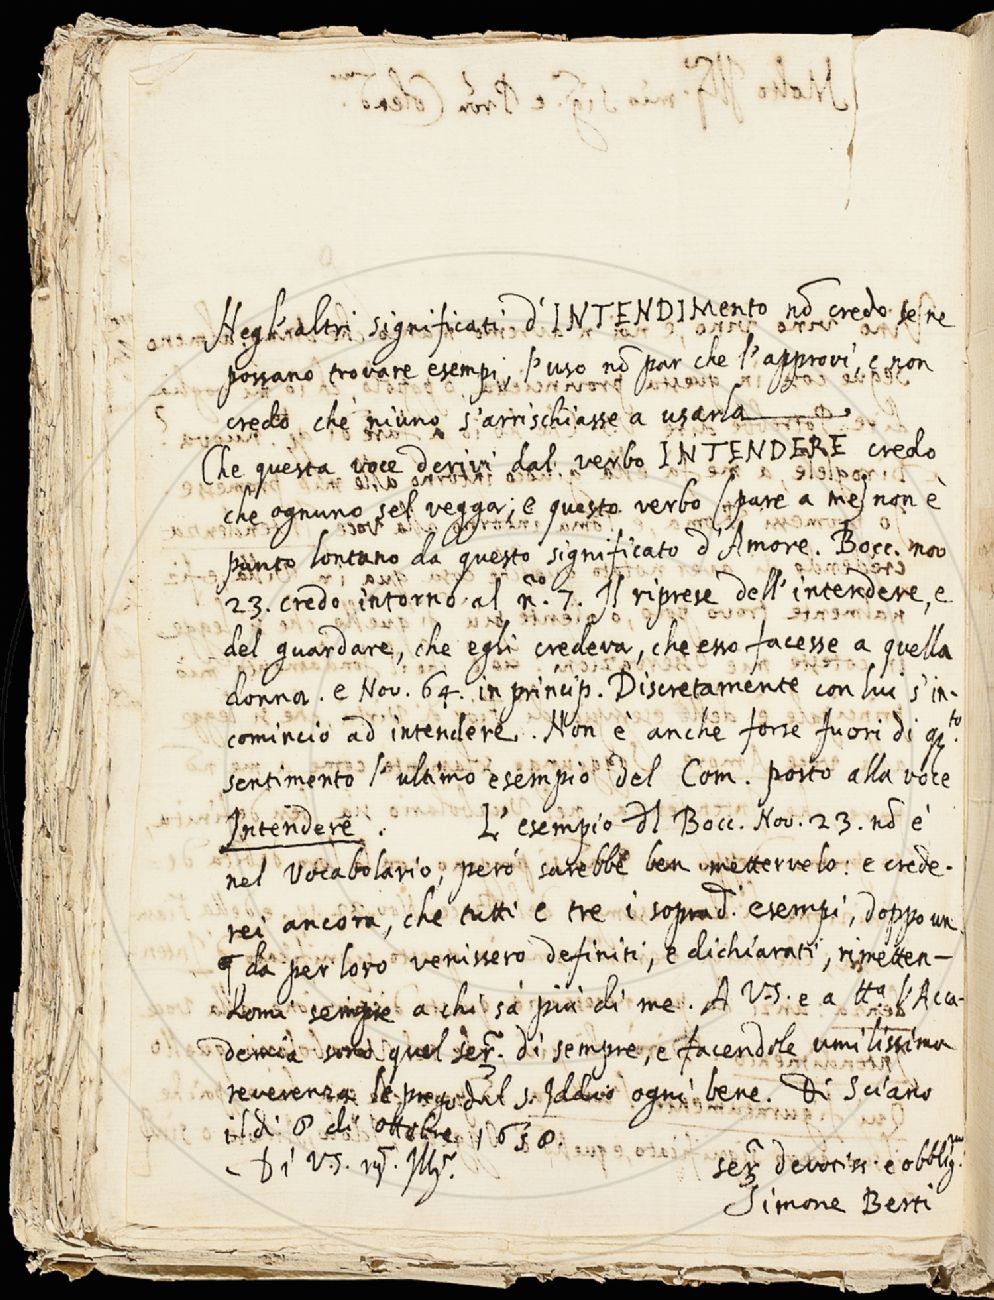 Negl'altri significati d'INTENDIMento nō credo se ne
possano trovare esempi, l'uso nō par che l'approvi, e non
credo che niuno s'arrischiasse a usarla
Che questa voce derivi dal verbo INTENDERE credo
che ognuno sel vegga; e questo verbo (pare a me) non è
punto lontano da questo significato d'Amore. Bocc. nov
23. credo intorno al n.° 7. Il riprese dell'intendere, e
del guardare, che egli credeva, che esso facesse a quella
donna. e Nov. 64. in princip. Discretamente con lui s'in-
cominciò ad intendere. Non è anche forse fuori di q.to
sentimento l'ultimo esempio del Com. posto alla voce
Intendere. L'esempio dl Bocc. Nov. 23. nō è
nel Vocabolario, però sarebbe ben mettervelo: e crede-
rei ancora, che tutti e tre i soprad. esempi, doppo un
da per loro venissero definiti, e dichiarati, rimetten-
domi sempre a chi sà più di me. A V.S. e a tta l'Acca-
demia sono quel ser. di sempre, e facendole umilissima
reverenza le prego dal s. Iddio ogni bene. Di Sciano
il dì 8 di ottobre 1658.
Di V.S. M. Ill.
ser. devotiss. e obblig.
Simone Berti